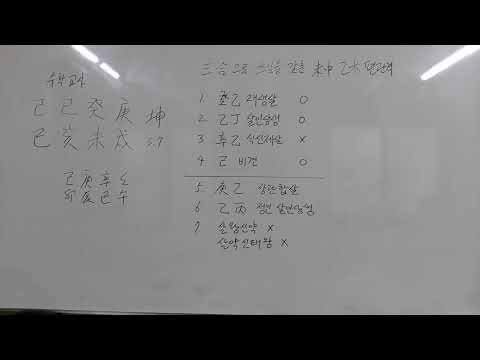 수학교사
己 己 癸 庚 坤
己 亥 未 戌 3.7
己 庚 辛 壬
卯 辰 巳 午
三合으로 쓰임을 갖춘 未中 乙木 편관격
1 癸乙 재생살 O
2 乙丁 살인상생 O
3 辛乙 식신제살 X
4 己 비견 O
5 庚乙 양간합살
6 乙丙 정인 살인상생
7 살왕신약 X
살약신태왕 X